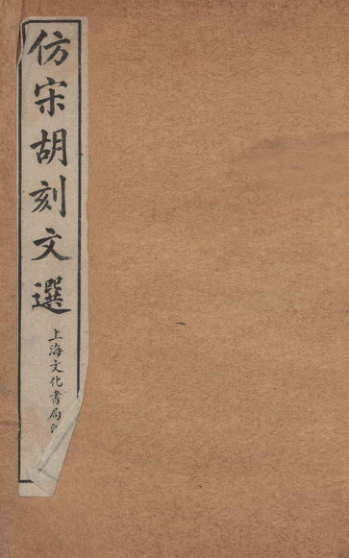 仿宋胡刻文選
上海文化書局